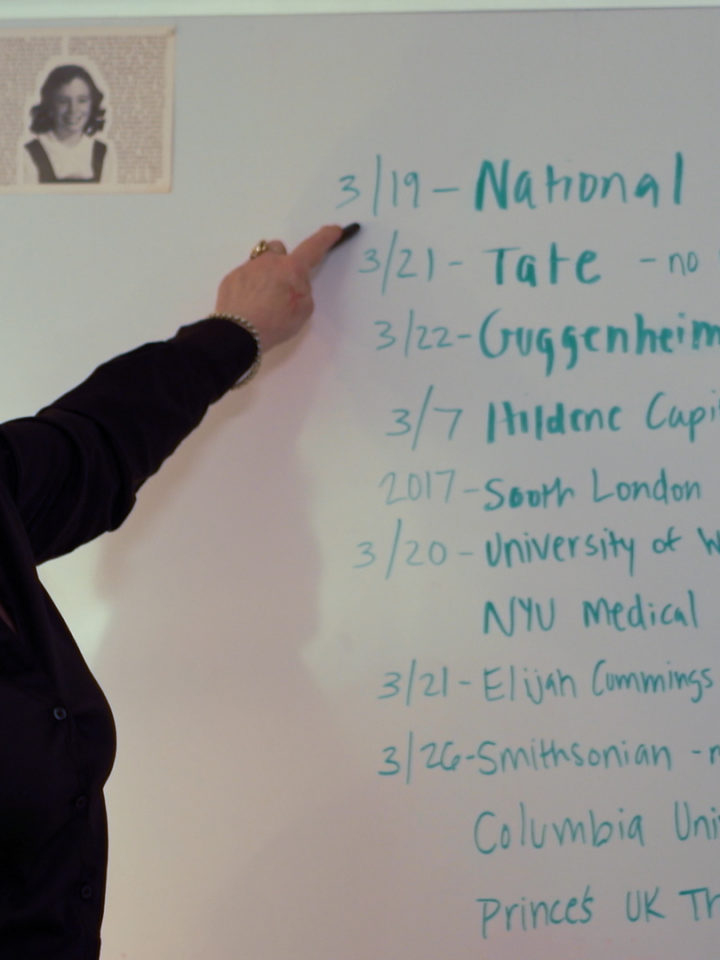 3/19 - National
3/21 - Tate - no
3/22 - Guggenheim
3/7 Hildene Capi
2017 - South London
3/20 - University of W
NYU Medical
3/21 - Elijah Cummings
3/26 - Smithsonian - n
Columbia Uni
Prince's UK Tr